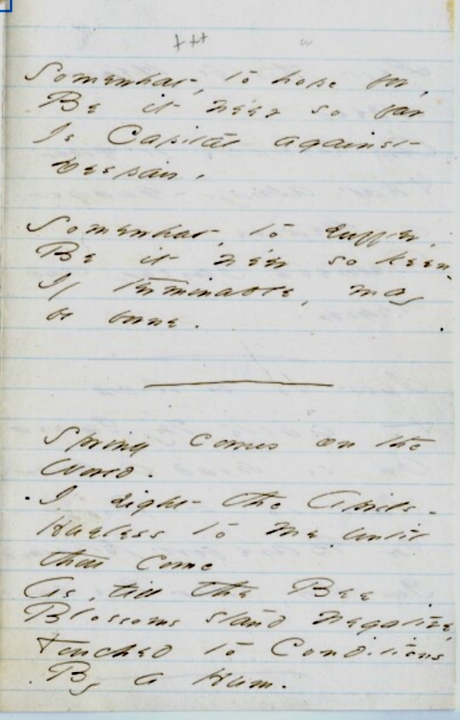 +++
Somewhat, to hope for,
Be it ne'er so far
Is Capital against
Despair.
Somewhat, to suffer,
Be it ne'er so keen,
If terminable, may
be borne.
Spring comes on the
World.
I sight the Aprils.
Hueless to me until
thou come
As, till the Bee
Blossoms stand negative,
Touched to Conditions
By a Hum.